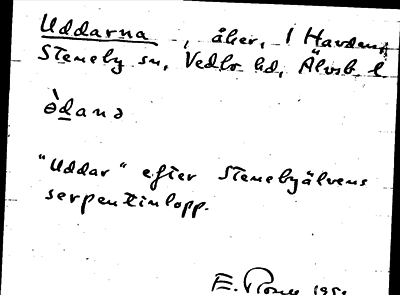 Uddarna, åker, 1 Hardens,
Steneby sn, Vedbo hd, Älvsb l
ə̀danə
"Uddar" efter Stenebyälvens
serpentinlopp.
E.